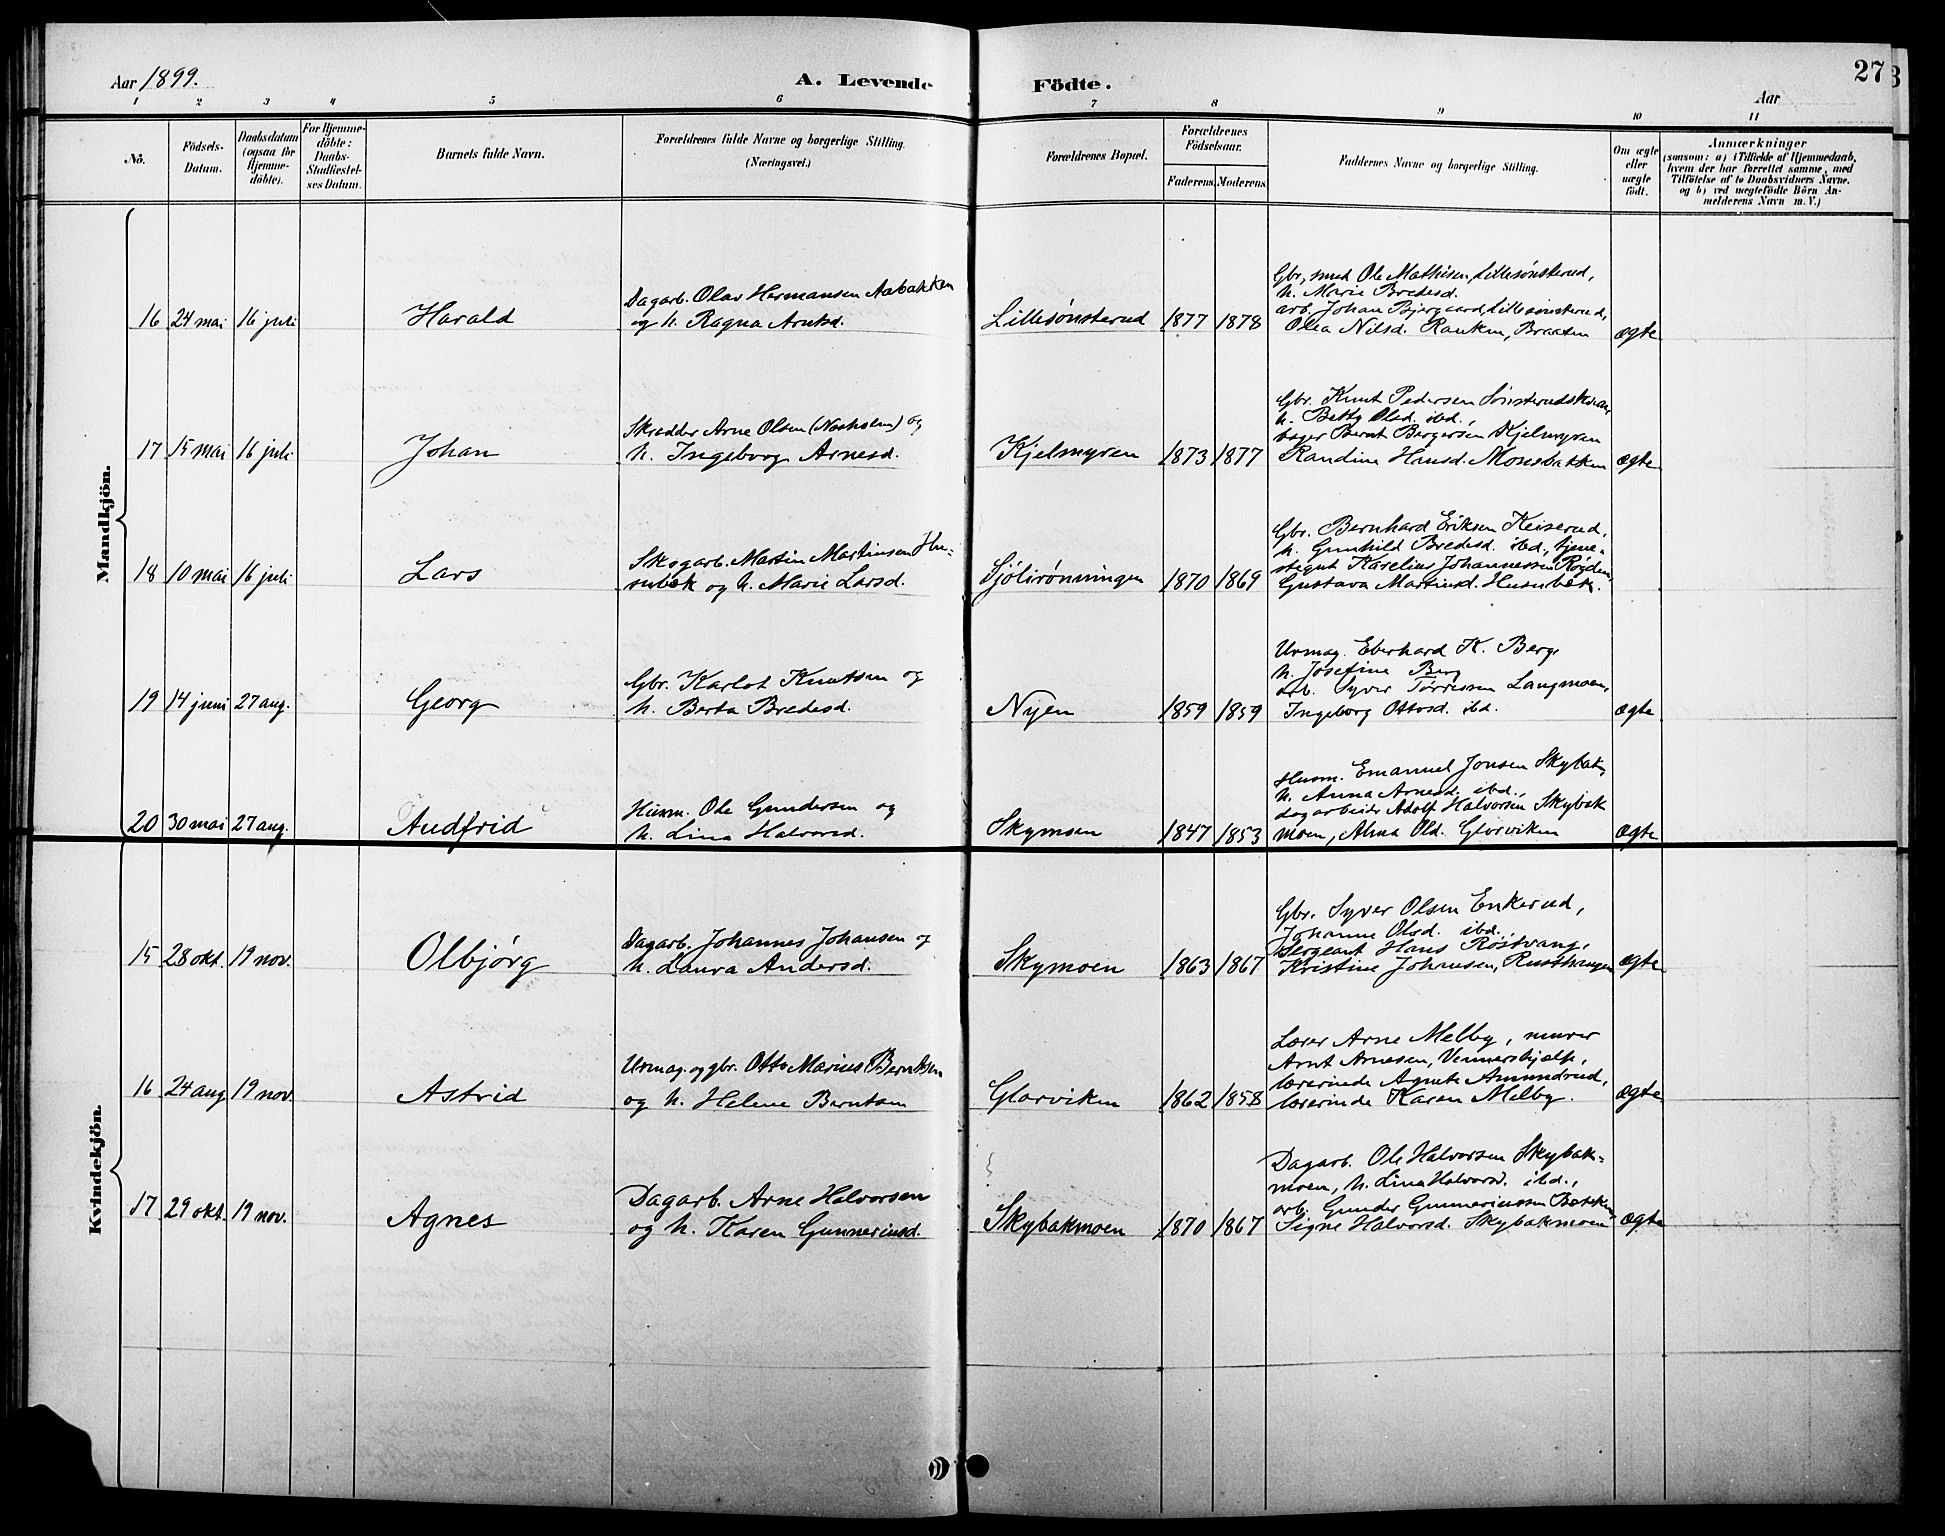 Aar 1899.
A. Levende Födte.
27
Aar
1 2 3 4 5 6 7 8 9 10 11
No.
Födsels-Datum.
Daabsdatum (ogsaa for Hjemme-döbte).
For Hjemme-döbte: Daabs-Stadfæstel-ses Datum.
Barnets fulde Navn.
Forældrenes fulde Navne og borgerlige Stilling.
(Næringsvei.)
Forældrenes Bopæl.
Forældrenes Födselsaar.
Faderens. Moderens.
Faddernes Navne og borgerlige Stilling.
Om ægte eller uægte födt.
Anmærkninger
(saasom: a) i Tilfælde af Hjemmedaab,
hvem der har forrettet samme, med
Tilföielse af to Daabsvidners Navne.
og b) ved uægtefödte Börn An-
melderens Navn m. V.)
Mandkjön.
16 24 mai 16 juli Harald
Dagarb. Olav Hermansen Aabakken
og h. Ragna Arntsd.
Lillesønsterud 1877 1878
Gbr, smed Ole Mathisen, Lillesønsterud,
h. Marie Bredesd.
arb. Johan Bjergaard, Lillesønsterud,
Olea Nilsd. Ranken, Braaten
ægte
17 15 mai 16 juli Johan
Skrædder Arne Olsen (Nesholen) og
h. Ingeborg Arnesd.
Kjelmyren 1873 1877
Gbr. Knut Pedersen
h. Betty Olsd. ibd.,
bager Bernt Bergersen Kjelmyren
Randine Hansd. Monsbakken
ægte
18 10 mai 16 juli Lars
Skogarb. Martin Martinsen Hu-
subæk og h. Marie Larsd.
Sjölirönningen 1870 1869
Gbr. Bernhard Eriksen Keiserud,
h. Gunhild Bredesd. ibd., tjene-
stegut Karelius Johannessen Røgden,
Gustava Martinsd. Husubæk.
19 14 juni 27 aug. Georg
Gbr. Karlot Knutsen og
h. Berta Bredesd.
Nyen 1859 1859
Urmag. Eberhard K. Berg,
h. Josefine Berg
arb. Syver Törresen Langmoen,
Ingeborg Ottosd. ibd.
ægte
20 30 mai 27 aug. Audfrid
Husm. Ole Gundersen og
h. Lina Halvorsd.
Skymoen 1847 1853
Husm. Emanuel Jonsen Skybak,
h. Anna Arnesd. ibd.,
dagarbeider Adolf Halvorsen Skybak
moen, Alma Olsd. Glorviken
ægte
Kvindekjön.
15 28 okt. 19 nov. Olbjørg
Dagarb. Johannes Johansen og
h. Laura Andersd.
Skymoen 1863 1867
Gbr. Syver Olsen Enkerud,
Johanne Olsd. ibd.,
Sergeant Hans Röstvang,
Kristine Johnsen,
ægte
16 24 aug 19 nov. Astrid
Urmag. og gbr. Otto Marius Berntsen
og h. Helene Berntsen
Glorviken 1862 1858
Lærer Arne Melby, murer
Arnt Arnesen, Vennershjelp,
lærerinde Agnete Amundrud,
lærerinde Karen Melby.
ægte
17 29 okt. 19 nov. Agnes
Dagarb. Arne Halvorsen
og h. Karen Gunneriusd.
Skybakmoen 1870 1867
Dagarb. Ole Halvorsen Skybak-
moen, h. Lina Halvorsd. ibd.,
arb. Gunder Gunneriussen Bakken,
Signe Halvorsd. Skybakmoen
ægte